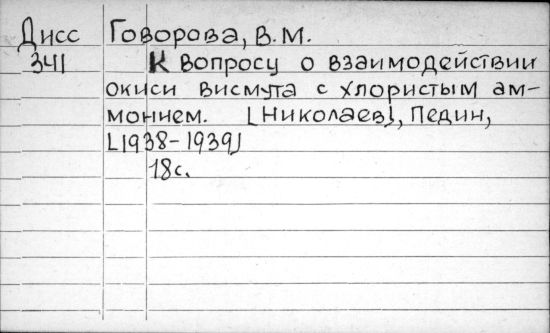 Дисс Говорова, В.М.
341 К вопросу о взаимодействии
окиси висмута с хлористым ам-
монием. [Николаев], Педин,
[1938-1939]
18с.